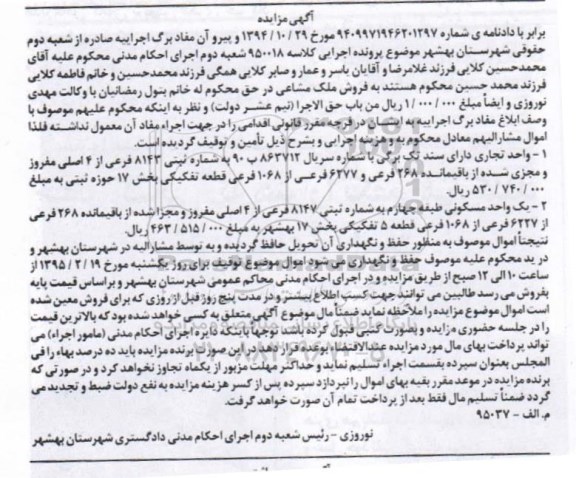 آگهی مزایده
برابر با دادنامه ی شماره ۹۴۰۹۹۷۱۹۴۶۲۰۱۲۹۷ مورخ ۲۹ / ۱۰ / ۱۳۹۴ و پیرو آن مفاد برگ اجراییه صادره از شعبه دوم
حقوقی شهرستان بهشهر موضوع پرونده اجرایی کلاسه ۹۵۰۰۱۸ شعبه دوم اجرای احکام مدنی محکوم علیه آقای
محمدحسین کلایی فرزند غلامرضا و آقایان یاسر و عمار و صابر کلایی همگی فرزند محمدحسین و خانم فاطمه کلایی
فرزند محمد حسین محکوم هستند به فروش ملک مشاعی در حق محکوم له خانم بتول رمضانیان با وکالت مهدی
نوروزی و ایضاً مبلغ ۰۰۰ / ۰۰۰ / ۱ ریال من باب حق الاجرا (نیم عشر دولت) و نظر به اینکه محکوم علیهم موصوف با
وصف ابلاغ مفاد برگ اجراییه به ایشان در فرجه مقرر قانونی اقدامی را در جهت اجراء مفاد آن معمول نداشته فلذا
اموال مشارالیهم معادل محکوم به و هزینه اجرایی و بشرح ذیل تأمین و توقیف گردیده است.
۱ - واحد تجاری دارای سند تک برگی با شماره سریال ۸۶۳۷۱۲ ب ۹۰ به شماره ثبتی ۸۱۴۳ فرعی از ۴ اصلی مفروز
و مجزی شده از باقیمانده ۲۶۸ فرعی و ۶۲۷۷ فرعی از ۱۰۶۸ فرعی قطعه تفکیکی بخش ۱۷ حوزه ثبتی به مبلغ
۰۰۰ / ۷۴۰ / ۵۳۰ ریال.
۲ - یک واحد مسکونی طبقه چهارم به شماره ثبتی ۸۱۴۷ فرعی از ۴ اصلی مفروز و مجزا شده از باقیمانده ۲۶۸ فرعی
از ۶۲۲۷ فرعی از ۱۰۶۸ فرعی قطعه ۵ تفکیکی بخش ۱۷ بهشهر به مبلغ ۰۰۰ / ۵۱۵ / ۴۶۳ ریال.
نتیجتاً اموال موصوف به منظور حفظ و نگهداری آن تحویل حافظ گردیده و به توسط مشارالیه در شهرستان بهشهر و
در ید محکوم علیه موصوف حفظ و نگهداری می شود اموال موضوع توقیف برای روز یکشنبه مورخ ۱۹ / ۲ / ۱۳۹۵ از
ساعت ۱۰ الی ۱۲ صبح از طریق مزایده و در اجرای احکام مدنی محاکم عمومی شهرستان بهشهر و براساس قیمت پایه
بفروش می رسد طالبین می توانند جهت کسب اطلاع بیشتر و در مدت پنج روز قبل از روزی که برای فروش معین شده
است اموال موضوع مزایده را ملاحظه نماید ضمناً مال موضوع آگهی متعلق به کسی خواهد شده بود که بالاترین قیمت
را در جلسه حضوری مزایده و بصورت کتبی قبول کرده باشد توجهاً باینکه دایره اجرای احکام مدنی (مامور اجراء) می
تواند پرداخت بهای مال مورد مزایده عندالاقتضاء بوعده قرار دهد در این صورت برنده مزایده باید ده درصد بهاء را فی
المجلس بعنوان سپرده بقسمت اجراء تسلیم نماید و حداکثر مهلت مزبور از یکماه تجاوز نخواهد کرد و در صورتی که
برنده مزایده در موعد مقرر بقیه بهای اموال را نپردازد سپرده پس از کسر هزینه مزایده به نفع دولت ضبط و تجدید می
گردد ضمناً تسلیم مال فقط بعد از پرداخت تمام آن صورت خواهد گرفت.
م. الف - ۹۵۰۳۷
نوروزی - رئیس شعبه دوم اجرای احکام مدنی دادگستری شهرستان بهشهر